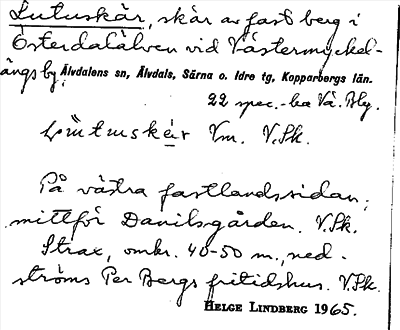 Lutuskär, skär av fast berg i
Österdalälven vid Västermyckel-
ängs by, Älvdalens sn, Älvdals, Särna o. Idre tg, Kopparbergs län.
22 spec.-bea Vä. Bly.
Vm. V.Sk.
På västra fastlandssidan,
mittför Danilsgården. V.Sk.
Strax, omkr. 40-50 m., ned-
ströms Per Bergs fritidshus. V.Sk.
HELGE LINDBERG 1965.